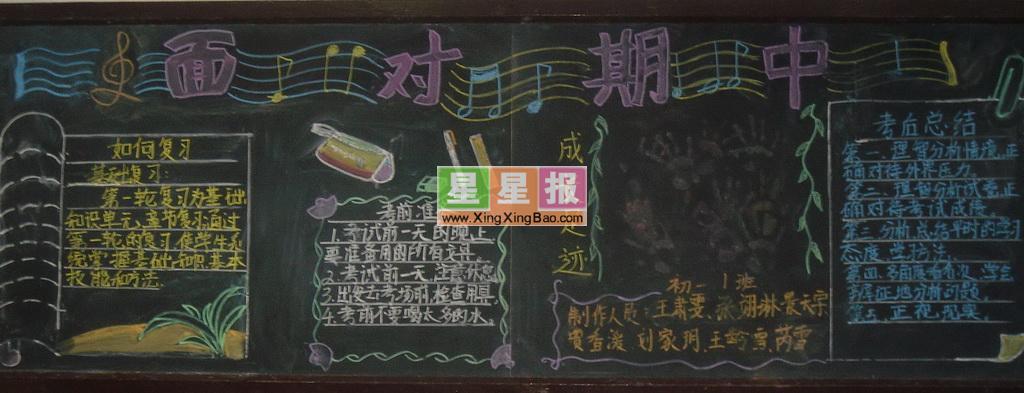 面对期中
如何复习
基础复习:
第一轮复习为基础
知识单元、章节复习。通过
第一轮的复习，使学生系
统掌握基础知识、基本
技能和方法.
考前准
1.考试前一天的晚上
要准备用的所有文具.
2.考试前一天.注意休息
3.出发去考场前,检查用具.
4.考前不要喝太多的水.
星星报
www.XingXingBao.com
成
足迹
初一 1班
制作人员:王
刘家明、王
考后总结
第一.理智分析情况,正
确对待外界压力.
第二.理智分析试卷.正
确对待考试成绩.
第三.分析点在平时的学习
态度.与方法.
第四.多角度看看次.学生
分析问题.
第五.正视现实.